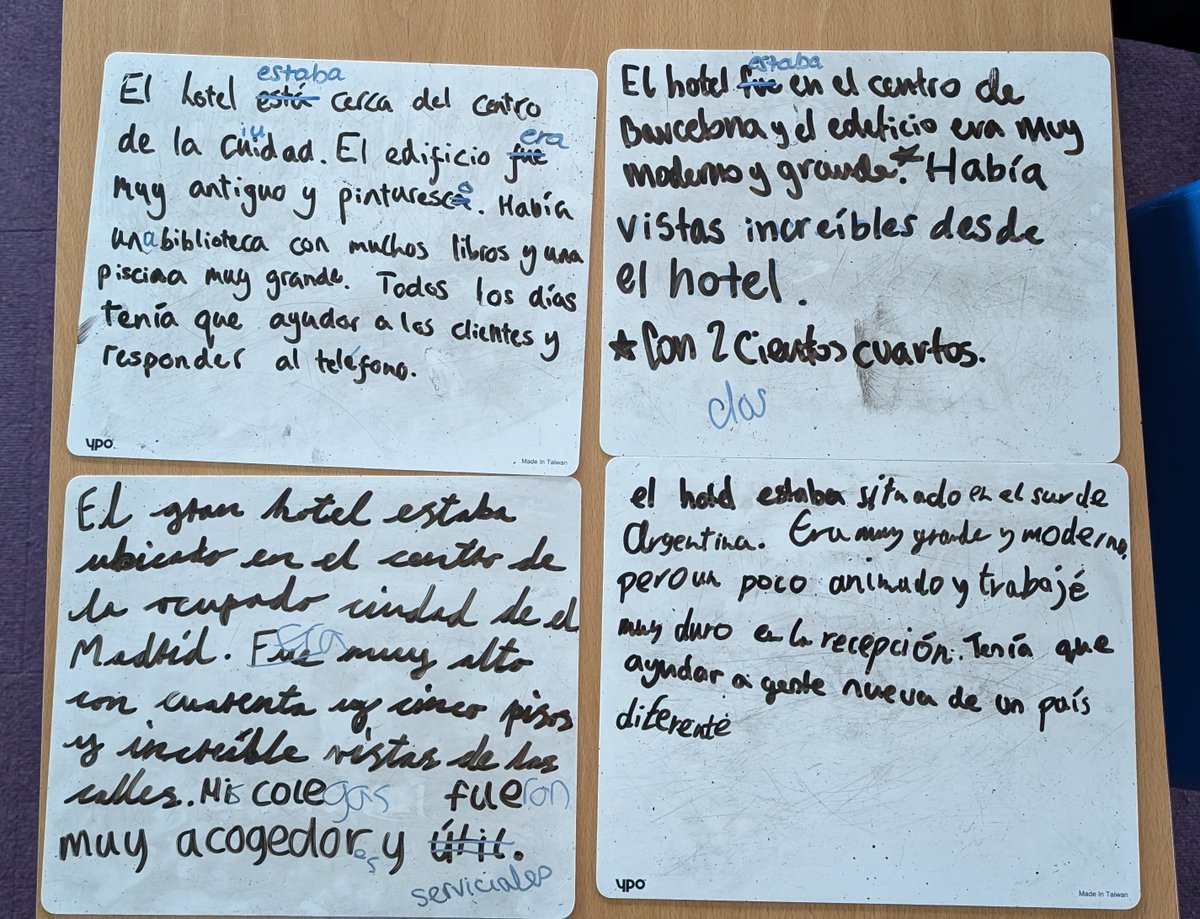 estaba
El hotel está cerca del centro
iu
de la cuidad. El edificio fue
era
muy antiguo y pinturesco. Había
una biblioteca con muchos libros y una
piscina muy grande. Todos los días
tenía que ayudar a los clientes y
responder al teléfono.
ypo
Made In Taiwan
estaba
El hotel fue en el centro de
Barcelona y el edeficio era muy
moderno y grande.* Había
vistas increíbles desde
el hotel.
★Con 2 cientos cuartos.
dos
El gran hotel estaba
ubicado en el centro de
la ocupado ciudad de el
Madrid. Fue muy alto
con cuarenta y cinco pisos
y increíble vistas de las
calles. Mis colegas fueron
muy acogedores y útil.
serviciales
el hotel estaba situado en el sur de
Argentina. Era muy grande y moderno,
pero un poco animado y trabajé
muy duro en la recepción. Tenía que
ayudar a gente nueva de un país
diferente
ypo
Made In Taiwan